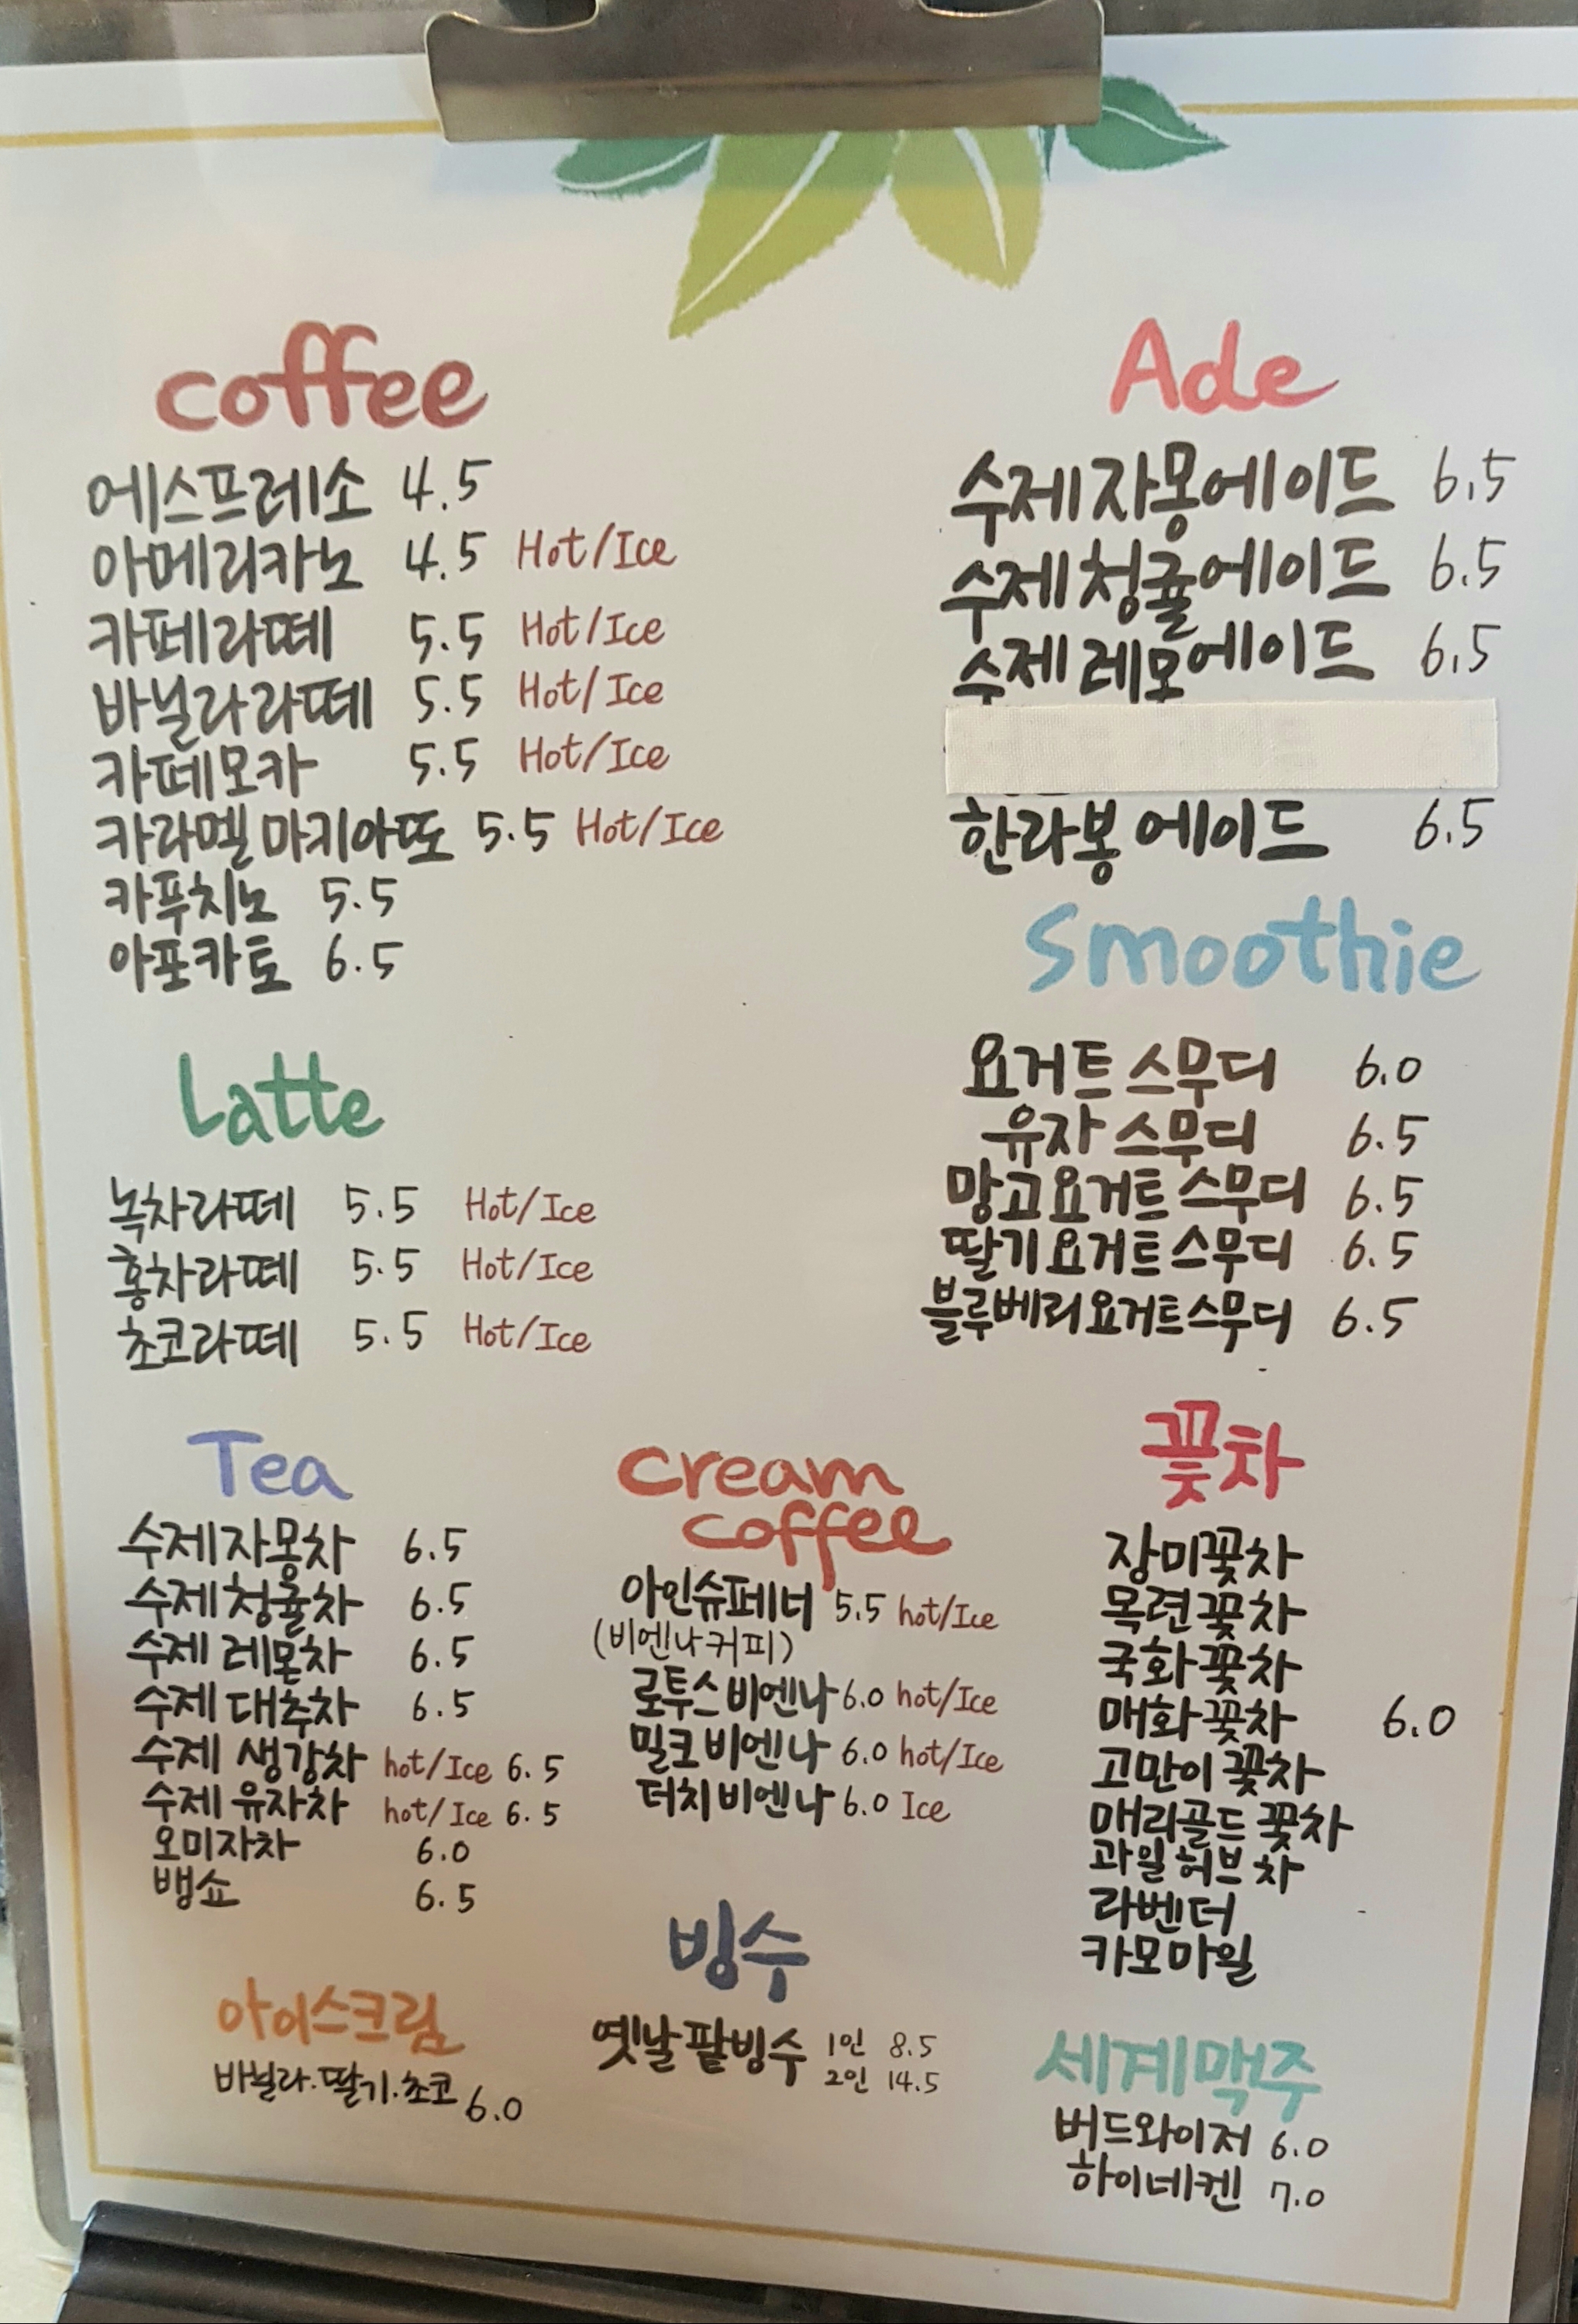 coffee
에스프레소 4.5
아메리카노 4.5 Hot/Ice
카페라떼 5.5 Hot/Ice
바닐라라떼 5.5 Hot/Ice
카페모카 5.5 Hot/Ice
카라멜 마키아또 5.5 Hot/Ice
카푸치노 5.5
아포카토 6.5
Latte
녹차라떼 5.5 Hot/Ice
홍차라떼 5.5 Hot/Ice
초코라떼 5.5 Hot/Ice
Tea
수제자몽차 6.5
수제청귤차 6.5
수제 레몬차 6.5
수제 대추차 6.5
수제 생강차 hot/Ice 6.5
수제 유자차 hot/Ice 6.5
오미자차 6.0
뱅쇼 6.5
아이스크림
바닐라.딸기.초코 6.0
Cream
coffee
아인슈페너 5.5 hot/Ice
(비엔나커피)
로투스비엔나 6.0 hot/Ice
밀크비엔나 6.0 hot/Ice
더치비엔나 6.0 Ice
빙수
옛날팥빙수 1인 8.5
2인 14.5
Ade
수제자몽에이드 6.5
수제청귤에이드 6.5
수제레몬에이드 6.5
한라봉에이드 6.5
Smoothie
요거트 스무디 6.0
유자 스무디 6.5
망고요거트스무디 6.5
딸기요거트스무디 6.5
블루베리요거트스무디 6.5
꽃차
장미꽃차
목련꽃차
국화꽃차
매화꽃차 6.0
고만이꽃차
매리골드 꽃차
과일허브차
라벤더
카모마일
세계맥주
버드와이저 6.0
하이네켄 7.0